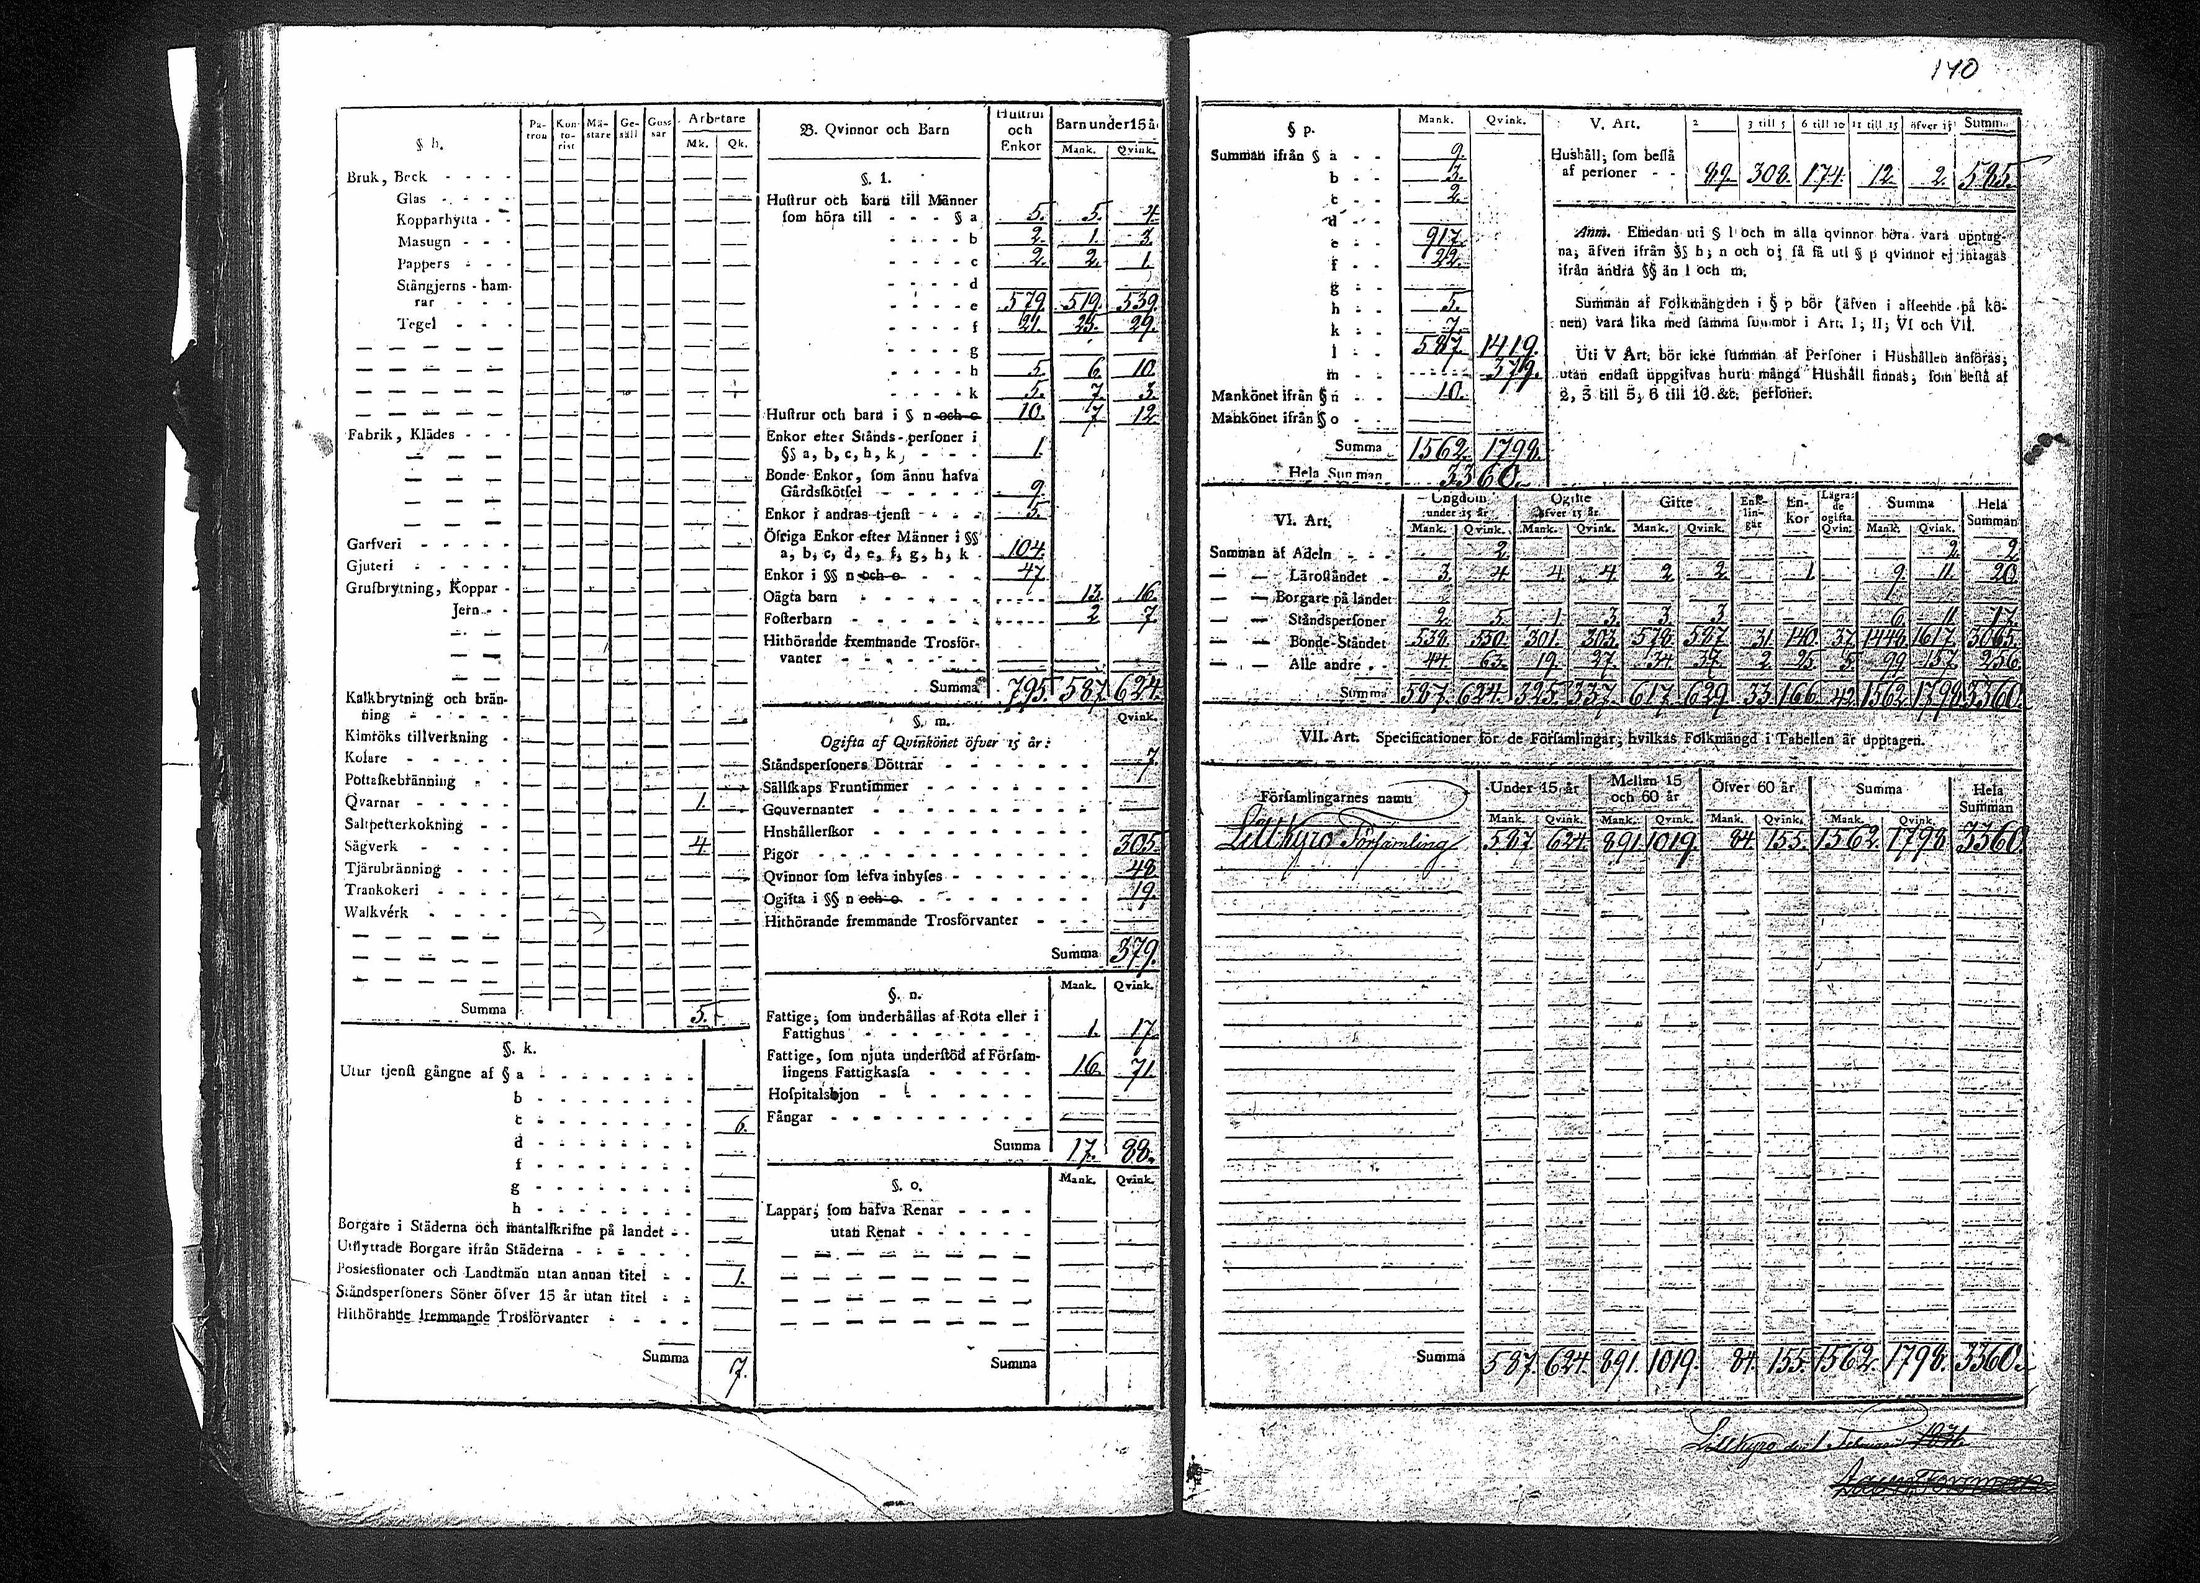 140
§ h.
Pa-tron Kon-to-rist Mä-stare Ge-säll Goss-sar Arbetare
Mk. Qk.
Bruk, Beck
Glas
Kopparhytta
Masugn
Pappers
Stångjerns-ham-
rar
Tegel
Fabrik, Klädes
Garfveri
Gjuteri
Grufbrytning, Koppar
Jern
Kalkbrytning och brän-
ning
Kimröks tillverkning
Kolare
Pottaskebränning
Qvarnar 1.
Saltpetterkokning
Sågverk 4.
Tjärubränning
Trankokeri
Walkverk
Summa 5.
§. k.
Utur tjenst gångne af § a
b
c 6.
d
f
g
h
Borgare i Städerna och mantalskrifne på landet
Utflyttade Borgare ifrån Städerna
Possessionater och Landtmän utan annan titel 1.
Ståndspersoners Söner öfver 15 år utan titel
Hithörande fremmande Trosförvanter
Summa 7.
B. Qvinnor och Barn
Hustrur och Enkor Barn under 15 år
Mank. Qvink.
§. l.
Hustrur och barn till Männer
som höra till § a 5. 5. 4.
b 2. 1. 3.
c 2. 2. 1.
d
e 579. 519. 539.
f 21. 25. 29.
g
h 5. 6. 10.
k 5. 7. 3.
Hustrur och barn i § n och o 10. 7. 12.
Enkor efter Stånds-personer i
§§ a, b, c, h, k, 1.
Bonde Enkor, som ännu hafva
Gårdsskötsel 9.
Enkor i andras tjenst 5.
Öfriga Enkor efter Männer i §§
a, b, c, d, e, f, g, h, k 104.
Enkor i §§ n och o 47.
Oägta barn 13. 16.
Fosterbarn 2. 7.
Hithörande fremmande Trosför-
vanter
Summa 795. 587. 624.
§. m. Qvink.
Ogifta af Qvinkönet öfver 15 år:
Ståndspersoners Döttrar 7.
Sällskaps Fruntimmer
Gouvernanter
Hushållerskor
Pigor 305.
Qvinnor som lefva inhyses 48.
Ogifta i §§ n och o 19.
Hithörande fremmande Trosförvanter
Summa 379.
§. n. Mank. Qvink.
Fattige, som underhållas af Rota eller i
Fattighus 1. 17.
Fattige, som njuta understöd af Församlingens Fattigkassa 16. 71.
Hospitalshjon
Fångar
Summa 17. 88.
§. o. Mank. Qvink.
Lappar, som hafva Renar
utan Renar
Summa
§ p. Mank. Qvink.
Summan ifrån § a 9.
b 3.
c 2.
d
e 917.
f 22.
g
h 5.
k 7.
l 587. 1419.
m 379.
Mankönet ifrån § n 10.
Mankönet ifrån § o
Summa 1562. 1798.
Hela Summan 3360.
V. Art. 2 3 till 5 6 till 10 11 till 15 öfver 15 Summa
Hushåll, som bestå
af personer 89. 308. 174. 12. 2. 585.
Anm. Emedan uti § l och m alla qvinnor böra vara upptag-
na, äfven ifrån §§ b, n och o, så få uti § p qvinnor ej intagas
ifrån andra §§ än l och m.
Summan af Folkmängden i § p bör (äfven i afseende på kö-
nen) vara lika med samma summor i Art. I, II, VI och VII.
Uti V Art. bör icke summan af Personer i Hushållen anföras,
utan endast uppgifvas huru många Hushåll finnas, som bestå af
2, 3 till 5, 6 till 10 &c. personer.
VI. Art. Ungdom under 15 år Ogifte öfver 15 år Gifte Enk-lin-gar En-kor Lägra-de ogifta Qvin. Summa Hela Summan
Mank. Qvink. Mank. Qvink. Mank. Qvink. Mank. Qvink.
Summan af Adeln 2. 2. 2.
Läroståndet 3. 4. 4. 4. 2. 2. 1. 9. 11. 20.
Borgare på landet
Ståndspersoner 2. 5. 1. 3. 3. 3. 6. 11. 17.
Bonde-Ståndet 538. 550. 301. 303. 578. 587. 31. 140. 37. 1448. 1617. 3065.
Alle andre 44. 63. 19. 27. 34. 37. 2. 25. 5. 99. 157. 256.
Summa 587. 624. 325. 337. 617. 629. 33. 166. 42. 1562. 1798. 3360.
VII. Art. Specificationer för de Församlingar, hvilkas Folkmängd i Tabellen är upptagen.
Församlingarnes namn Under 15 år Mellan 15 och 60 år Öfver 60 år Summa Hela Summan
Mank. Qvink. Mank. Qvink. Mank. Qvink. Mank. Qvink.
Lillkyro Församling 587. 624. 891. 1019. 84. 155. 1562. 1798. 3360.
Summa 587. 624. 891. 1019. 84. 155. 1562. 1798. 3360.
Lillkyro den 1 Februarii 1831.